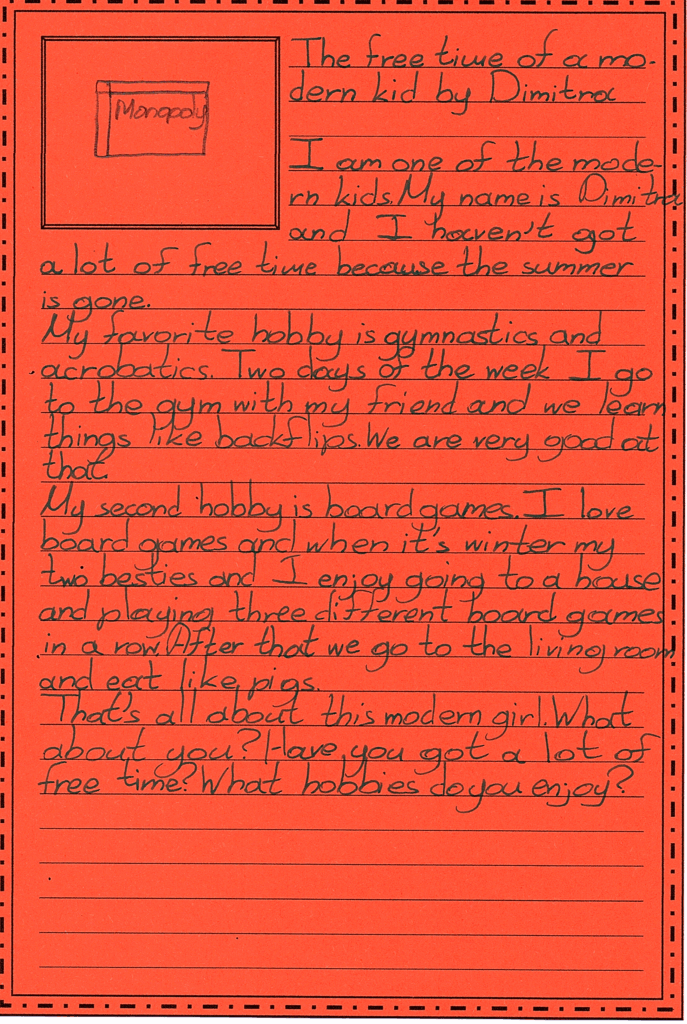 Monopoly
The free time of a mo-
dern kid by Dimitra
I am one of the mode-
rn kids. My name is Dimitra
and I haven't got
a lot of free time because the summer
is gone.
My favorite hobby is gymnastics and
acrobatics. Two days of the week I go
to the gym with my friend and we learn
things like backflips. We are very good at
that.
My second hobby is board games. I love
board games and when it's winter my
two besties and I enjoy going to a house
and playing three different board games
in a row. After that we go to the living room
and eat like pigs.
That's all about this modern girl. What
about you? Have you got a lot of
free time? What hobbies do you enjoy?